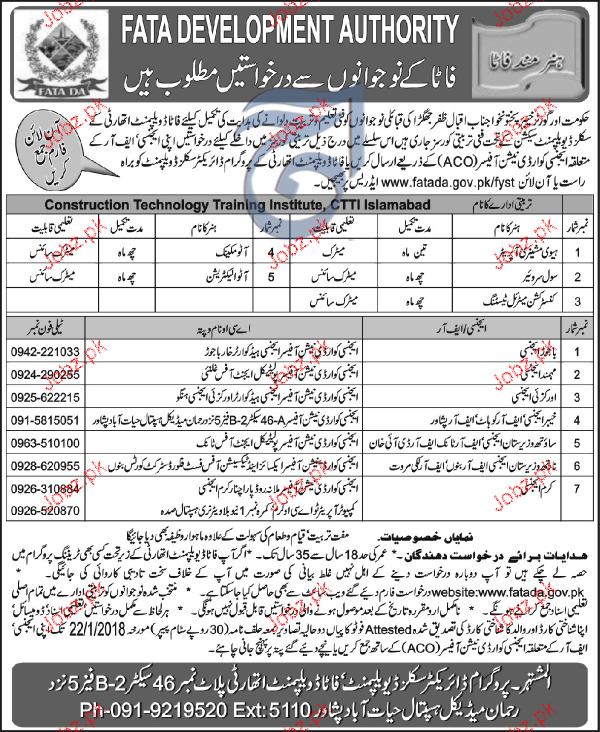 FATA DEVELOPMENT AUTHORITY
FATA DA
ہنرمند فاٹا
فاٹا کے نوجوانوں سے درخواستیں مطلوب ہیں
آن لائن فارم جمع کریں
حکومت اور گورنر خیبر پختونخوا جناب اقبال ظفر جھگڑا کی قبائلی نوجوانوں کو فنی تعلیم و تربیت دلوانے کی ہدایت کی تکمیل کیلئے فاٹا ڈویلپمنٹ اتھارٹی کے
سکلز ڈویلپمنٹ سیکشن کے تحت فنی تربیتی کورسز جاری ہیں اس سلسلے میں درج ذیل تربیتی کورسز میں داخلے کیلئے درخواستیں اپنی ایجنسی/ایف آر کے
متعلقہ ایجنسی کوارڈی نیشن آفیسر (ACO) کے ذریعے ارسال کریں یا فاٹا ڈویلپمنٹ اتھارٹی کے پروگرام ڈائریکٹر سکلز ڈویلپمنٹ کو براہ
راست یا آن لائن www.fatada.gov.pk/fyst ایڈریس پر بھیجیں۔
تربیتی ادارے کا نام Construction Technology Training Institute, CTTI Islamabad
نمبر شمار ہنر کا نام مدت تکمیل تعلیمی قابلیت نمبر شمار ہنر کا نام مدت تکمیل تعلیمی قابلیت
1 ہیوی مشینری آپریٹر تین ماہ میٹرک 4 آٹو مکینک چھ ماہ میٹرک سائنس
2 سول سرویئر چھ ماہ میٹرک سائنس 5 آٹو الیکٹریشن چھ ماہ میٹرک سائنس
3 کنسٹرکشن میٹریل ٹیسٹنگ چھ ماہ میٹرک سائنس
نمبر شمار ایجنسی/ایف آر اے سی او نام و پتہ ٹیلی فون نمبر
1 باجوڑ ایجنسی ایجنسی کوارڈی نیشن آفیسر ایجنسی ہیڈ کوارٹر خار باجوڑ 0942-221033
2 مہمند ایجنسی ایجنسی کوارڈی نیشن آفیسر پولیٹیکل ایجنٹ آفس غلنئی 0924-290255
3 اورکزئی ایجنسی ایجنسی کوارڈی نیشن آفیسر ایجنسی ہیڈ کوارٹر اورکزئی ایجنسی ہنگو 0925-622215
4 خیبر ایجنسی' ایف آر کوہاٹ' ایف آر پشاور ایجنسی کوارڈی نیشن آفیسر 46-A سیکٹر B-2 فیز 5 نزد رحمان میڈیکل ہسپتال حیات آباد پشاور 091-5815051
5 ساؤتھ وزیرستان ایجنسی' ایف آر ٹانک' ایف آر ڈی آئی خان ایجنسی کوارڈی نیشن آفیسر پولیٹیکل ایجنٹ آفس ٹانک 0963-510100
6 نارتھ وزیرستان ایجنسی' ایف آر بنوں' ایف آر لکی مروت ایجنسی کوارڈی نیشن آفیسر ایکسائز اینڈ ٹیکسیشن آفس فسٹ فلور ڈسٹرکٹ کورٹس بنوں 0928-620955
7 کرم ایجنسی ایجنسی کوارڈی نیشن آفیسر ملانہ روڈ پاراچنار کرم ایجنسی 0926-310884
کمپیوٹر آپریٹر ٹو اے سی او کرم کمرہ نمبر 1 نیو بلاک ویٹرنری ہسپتال صدہ 0926-520870
نمایاں خصوصیات۔ مفت تربیت' قیام و طعام کی سہولت کے علاوہ ماہوار وظیفہ بھی دیا جائیگا
ہدایات برائے درخواست دھندگان۔ * عمر کی حد 18 سال سے 35 سال تک۔ * اگر آپ فاٹا ڈویلپمنٹ اتھارٹی کے زیر تحت کسی بھی ٹریننگ پروگرام میں
حصہ لے چکے ہیں تو آپ دوبارہ درخواست دینے کے اہل نہیں غلط بیانی کی صورت میں آپ کے خلاف سخت تادیبی کاروائی کی جائیگی۔ *
درخواست فارم پر دیئے گئے ویب سائٹ سے بھی حاصل کیا جا سکتا ہے۔ website:www.fatada.gov.pk * منتخب شدہ نوجوانوں کو تربیتی ادارے میں تمام اصلی
تعلیمی اسناد جمع کرانے ہونگے۔ * نامکمل اور مقررہ تاریخ کے بعد موصول ہونے والی درخواستیں قابل قبول نہیں ہونگی۔ * ہر لحاظ سے مکمل درخواستیں تعلیمی اسناد' ڈومیسائل'
اپنا شناختی کارڈ اور والد کا شناختی کارڈ کی تصدیق شدہ Attested فوٹو کاپیاں دو حالیہ تصاویر بمعہ حلف نامہ (30 روپے سٹام پیپر) مورخہ 22/1/2018 تک اپنی ایجنسی'
ایف آر کے متعلقہ ایجنسی کوارڈی نیشن آفیسر (ACO) کے ساتھ جمع کریں یا نیچے دیئے گئے پتہ پر پہنچ جانی چاہئے۔
المشتہر۔ پروگرام ڈائریکٹر سکلز ڈویلپمنٹ' فاٹا ڈویلپمنٹ اتھارٹی پلاٹ نمبر 46 سیکٹر B-2 فیز 5 نزد
رحمان میڈیکل ہسپتال حیات آباد پشاور Ph-091-9219520 Ext: 5110